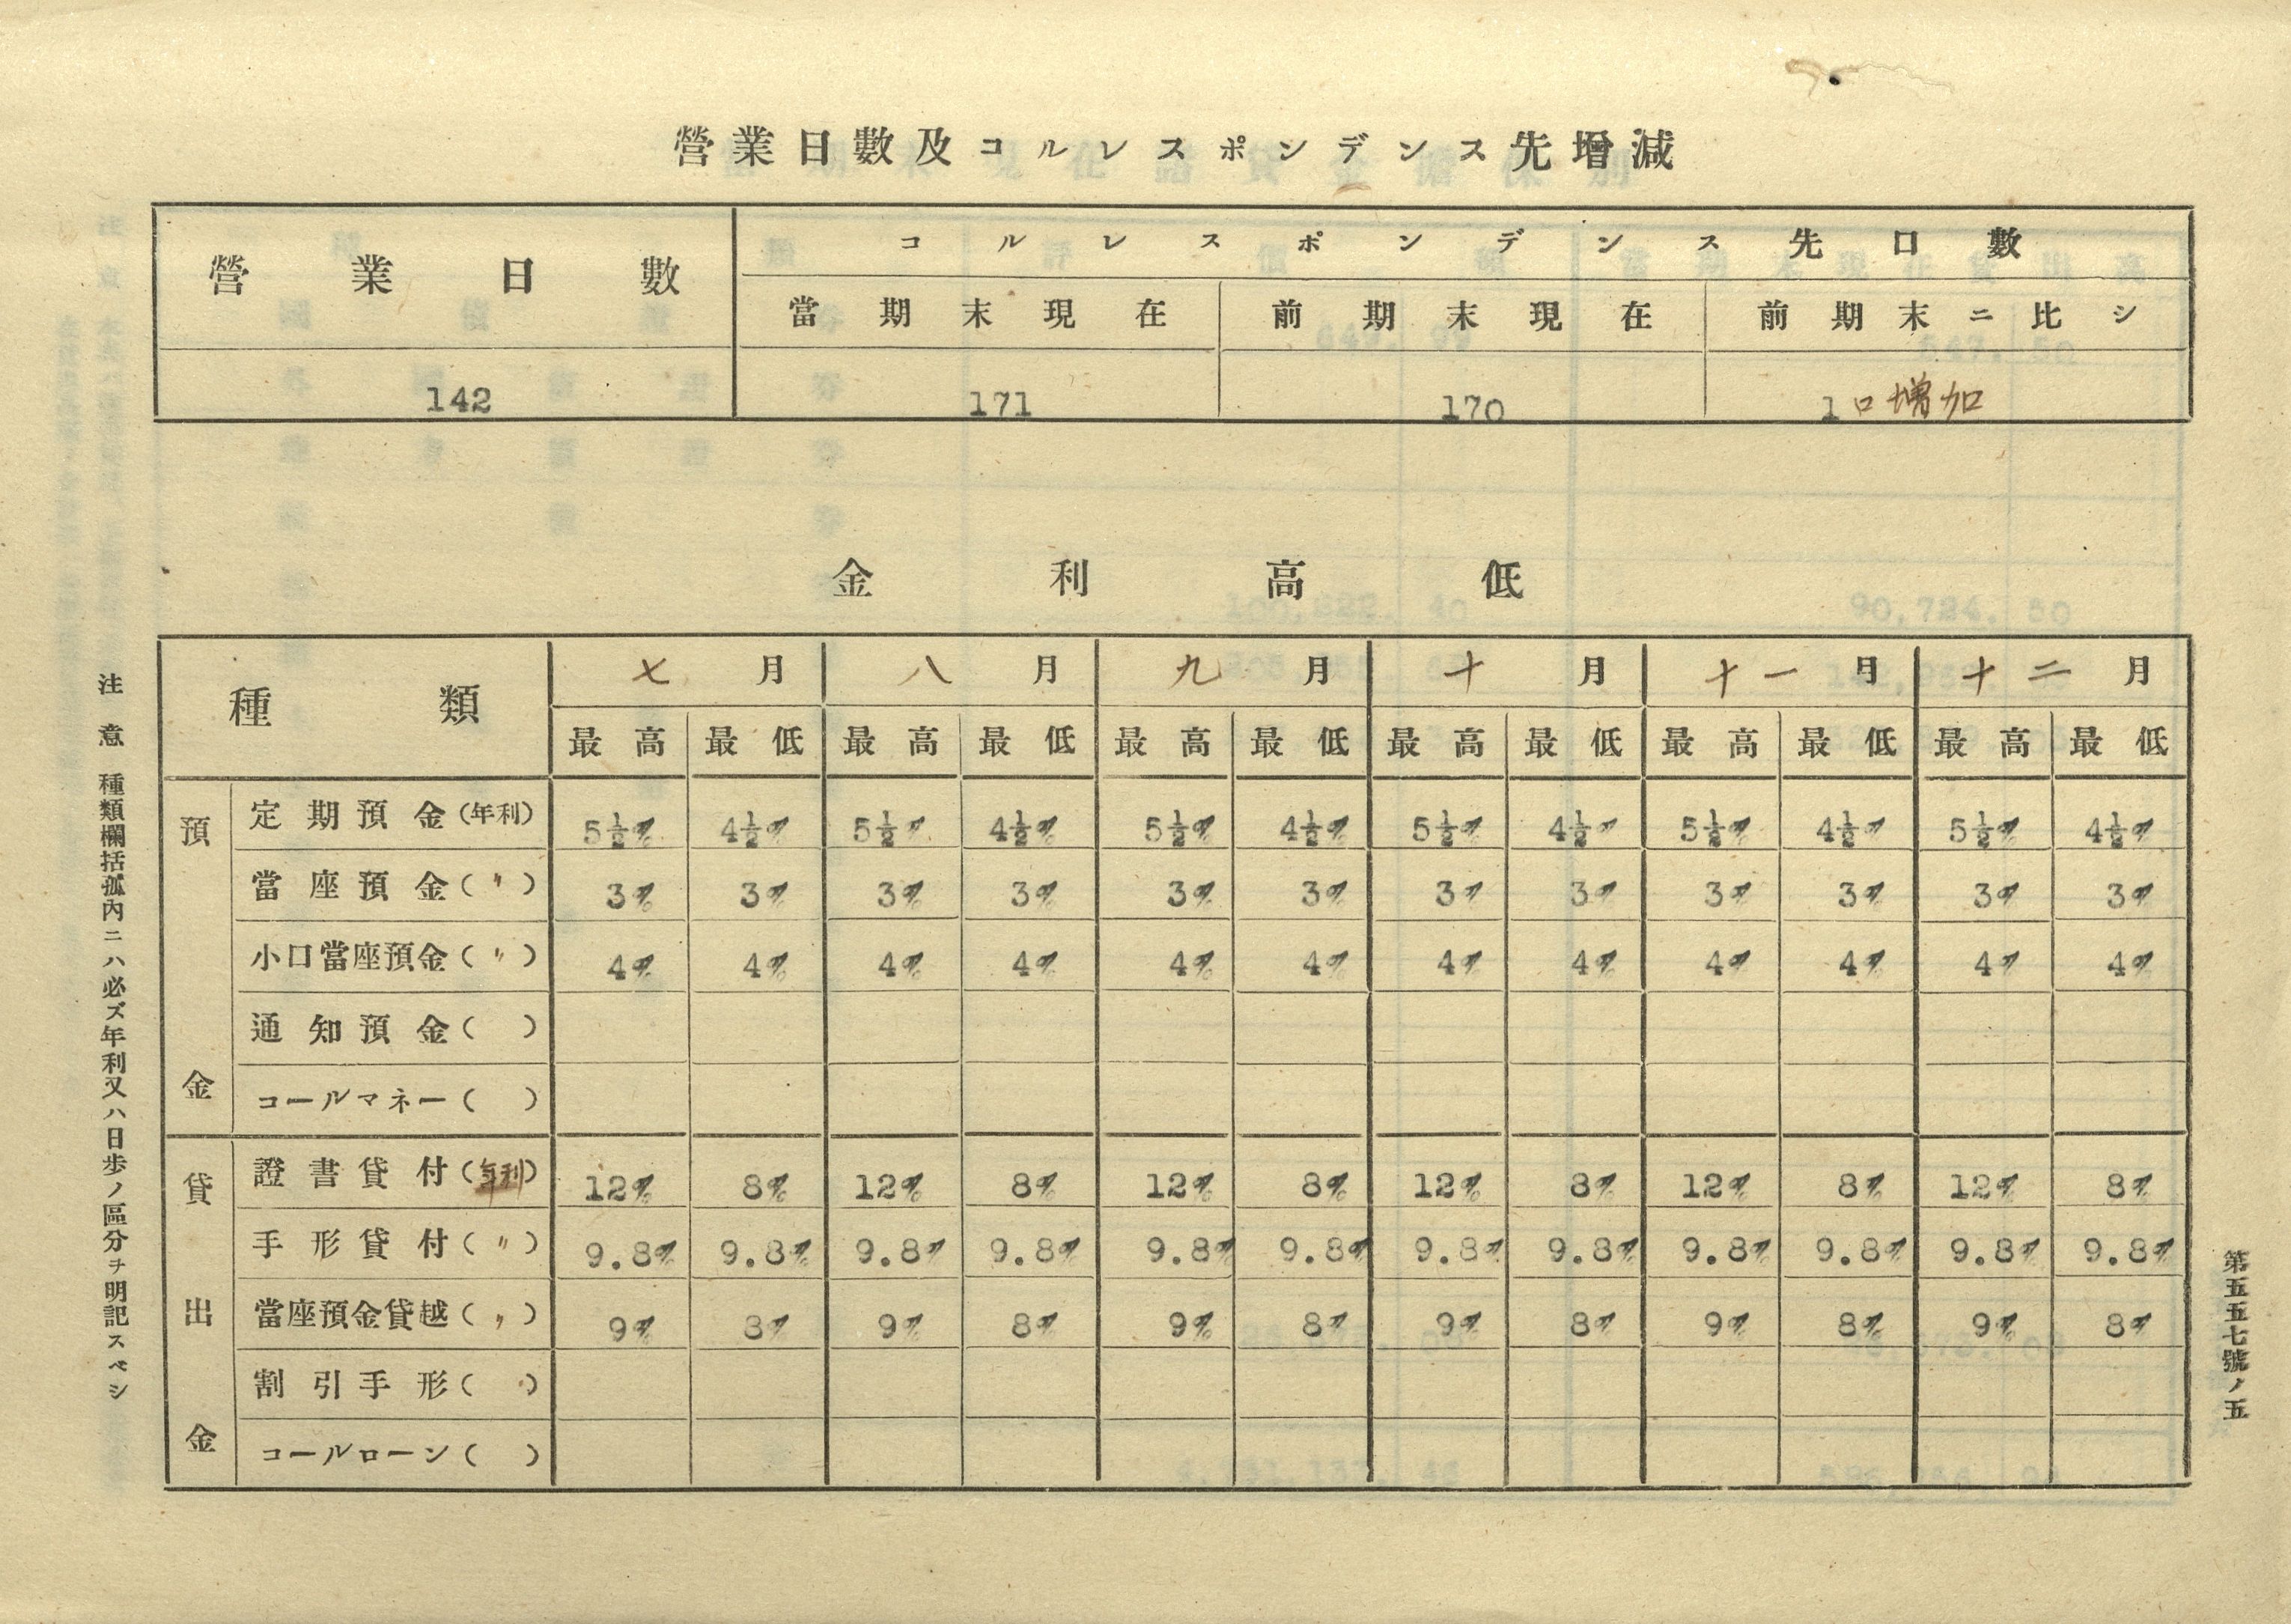 營業日數及コルレスポンデンス先增減
營業日數 コルレスポンデンス先口數
當期末現在 前期末現在 前期末ニ比シ
142 171 170 1口增加
金利高低
種類 七月 八月 九月 十月 十一月 十二月
最高 最低 最高 最低 最高 最低 最高 最低 最高 最低 最高 最低
預金
定期預金(年利) 5½% 4½% 5½% 4½% 5½% 4½% 5½% 4½% 5½% 4½% 5½% 4½%
當座預金(〃) 3% 3% 3% 3% 3% 3% 3% 3% 3% 3% 3% 3%
小口當座預金(〃) 4% 4% 4% 4% 4% 4% 4% 4% 4% 4% 4% 4%
通知預金( )
コールマネー( )
貸出金
證書貸付(年利) 12% 8% 12% 8% 12% 8% 12% 8% 12% 8% 12% 8%
手形貸付(〃) 9.8% 9.8% 9.8% 9.8% 9.8% 9.8% 9.8% 9.8% 9.8% 9.8% 9.8% 9.8%
當座預金貸越(〃) 9% 8% 9% 8% 9% 8% 9% 8% 9% 8% 9% 8%
割引手形( )
コールローン( )
注意 種類欄括孤內ニハ必ズ年利又ハ日步ノ區分ヲ明記スベシ
第五五七號ノ五